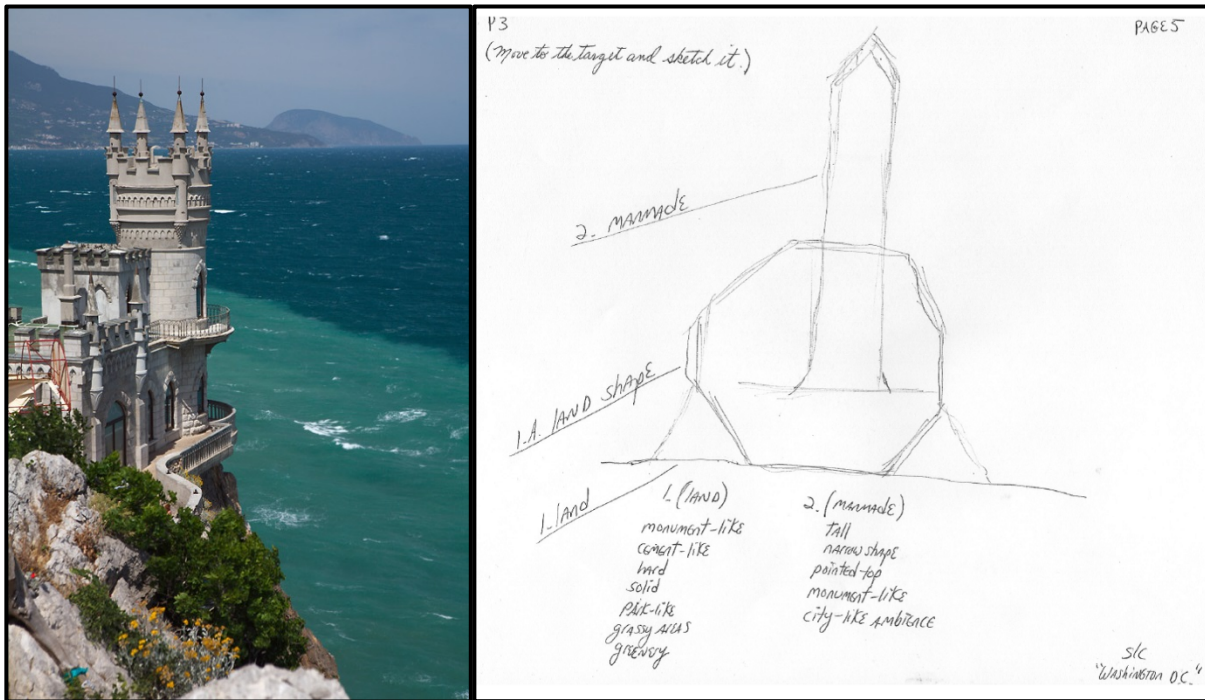 P3
PAGE 5
(Move to the target and sketch it.)
2. MANMADE
1.A. LAND SHAPE
1. land
1. (LAND)
MONUMENT-LIKE
CEMENT-LIKE
hard
solid
PARK-LIKE
grassy AREAS
greenery
2. (MANMADE)
TALL
NARROW SHAPE
pointed-top
MONUMENT-LIKE
CITY-LIKE AMBIENCE
S/C
"WASHINGTON D.C."